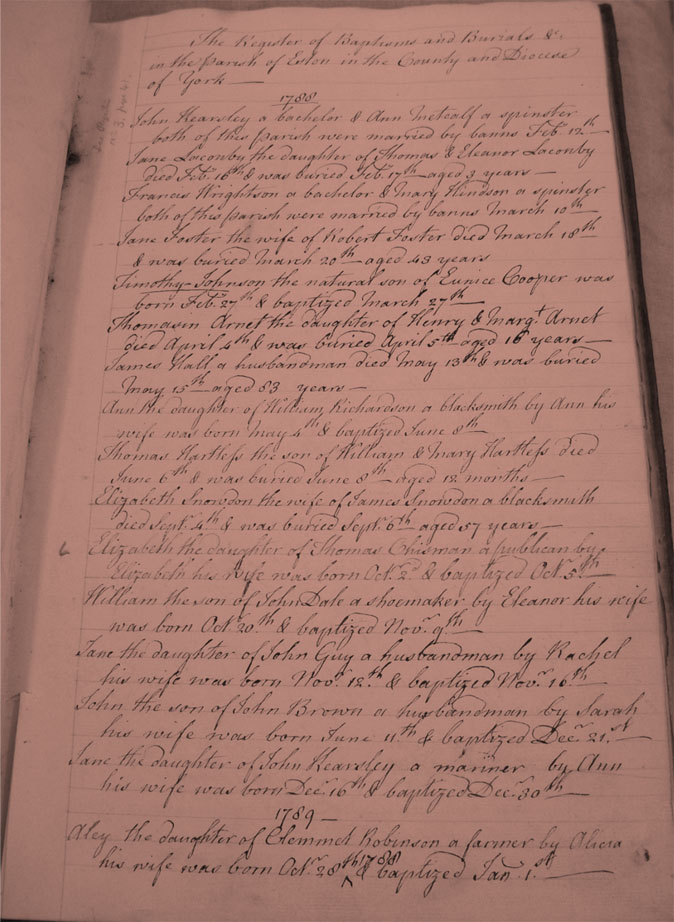 The Register of Baptisms and Burials &c.
in the Parish of Eston in the County and Diocese
of York —
1788
John Kearsley a bachelor & Ann Metcalf a spinster
both of this Parish were married by banns Feb. 12th —
Jane Laconby the daughter of Thomas & Eleanor Laconby
died Feb. 16th & was buried Feb. 17th — aged 3 years —
Francis Wrightson a bachelor & Mary Hindson a spinster
both of this Parish were married by banns March 10th —
Jane Foster the wife of Robert Foster died March 18th
& was buried March 20th — aged 43 years
Timothy-Johnson the natural son of Eunice Cooper was
born Feb. 27th & baptized March 27th —
Thomasin Arnet the daughter of Henry & Margt. Arnet
died April 4th & was buried April 5th aged 16 years —
James Hall a husbandman died May 13th & was buried
May 15th — aged 83 years —
Ann the daughter of William Richardson a blacksmith by Ann his
wife was born May 4th & baptized June 8th —
Thomas Hartless the son of William & Mary Hartless died
June 6th & was buried June 8th — aged 12 months —
Elizabeth Snowdon the wife of James Snowdon a blacksmith
died Sept. 4th & was buried Sept. 6th aged 57 years —
Elizabeth the daughter of Thomas Chisman a publican by
Elizabeth his wife was born Octr. 2d & baptized Octr. 5th —
William the son of John Dale a shoemaker by Eleanor his wife
was born Octr. 20th & baptized Novr. 9th —
Jane the daughter of John Guy a husbandman by Rachel
his wife was born Novr. 12th & baptized Novr. 16th —
John the son of John Brown a husbandman by Sarah
his wife was born June 11th & baptized Decr. 21st —
Jane the daughter of John Kearsley a mariner by Ann
his wife was born Decr. 16th & baptized Decr. 30th —
1789 —
Aley the daughter of Clemmet Robinson a farmer by Alicia
his wife was born Octr. 28th 1788 & baptized Jan. 1st —